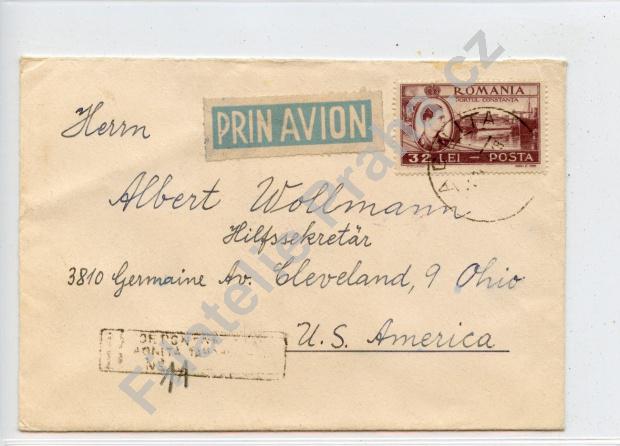 PRIN AVION
ROMANIA
PORTUL CONSTANȚA
32 LEI - POSTA
Herrn
Albert Wollmann
Hilfssekretär
3810 Germaine Av. Cleveland, 9 Ohio
U.S. America
Filatelie Praha.cz